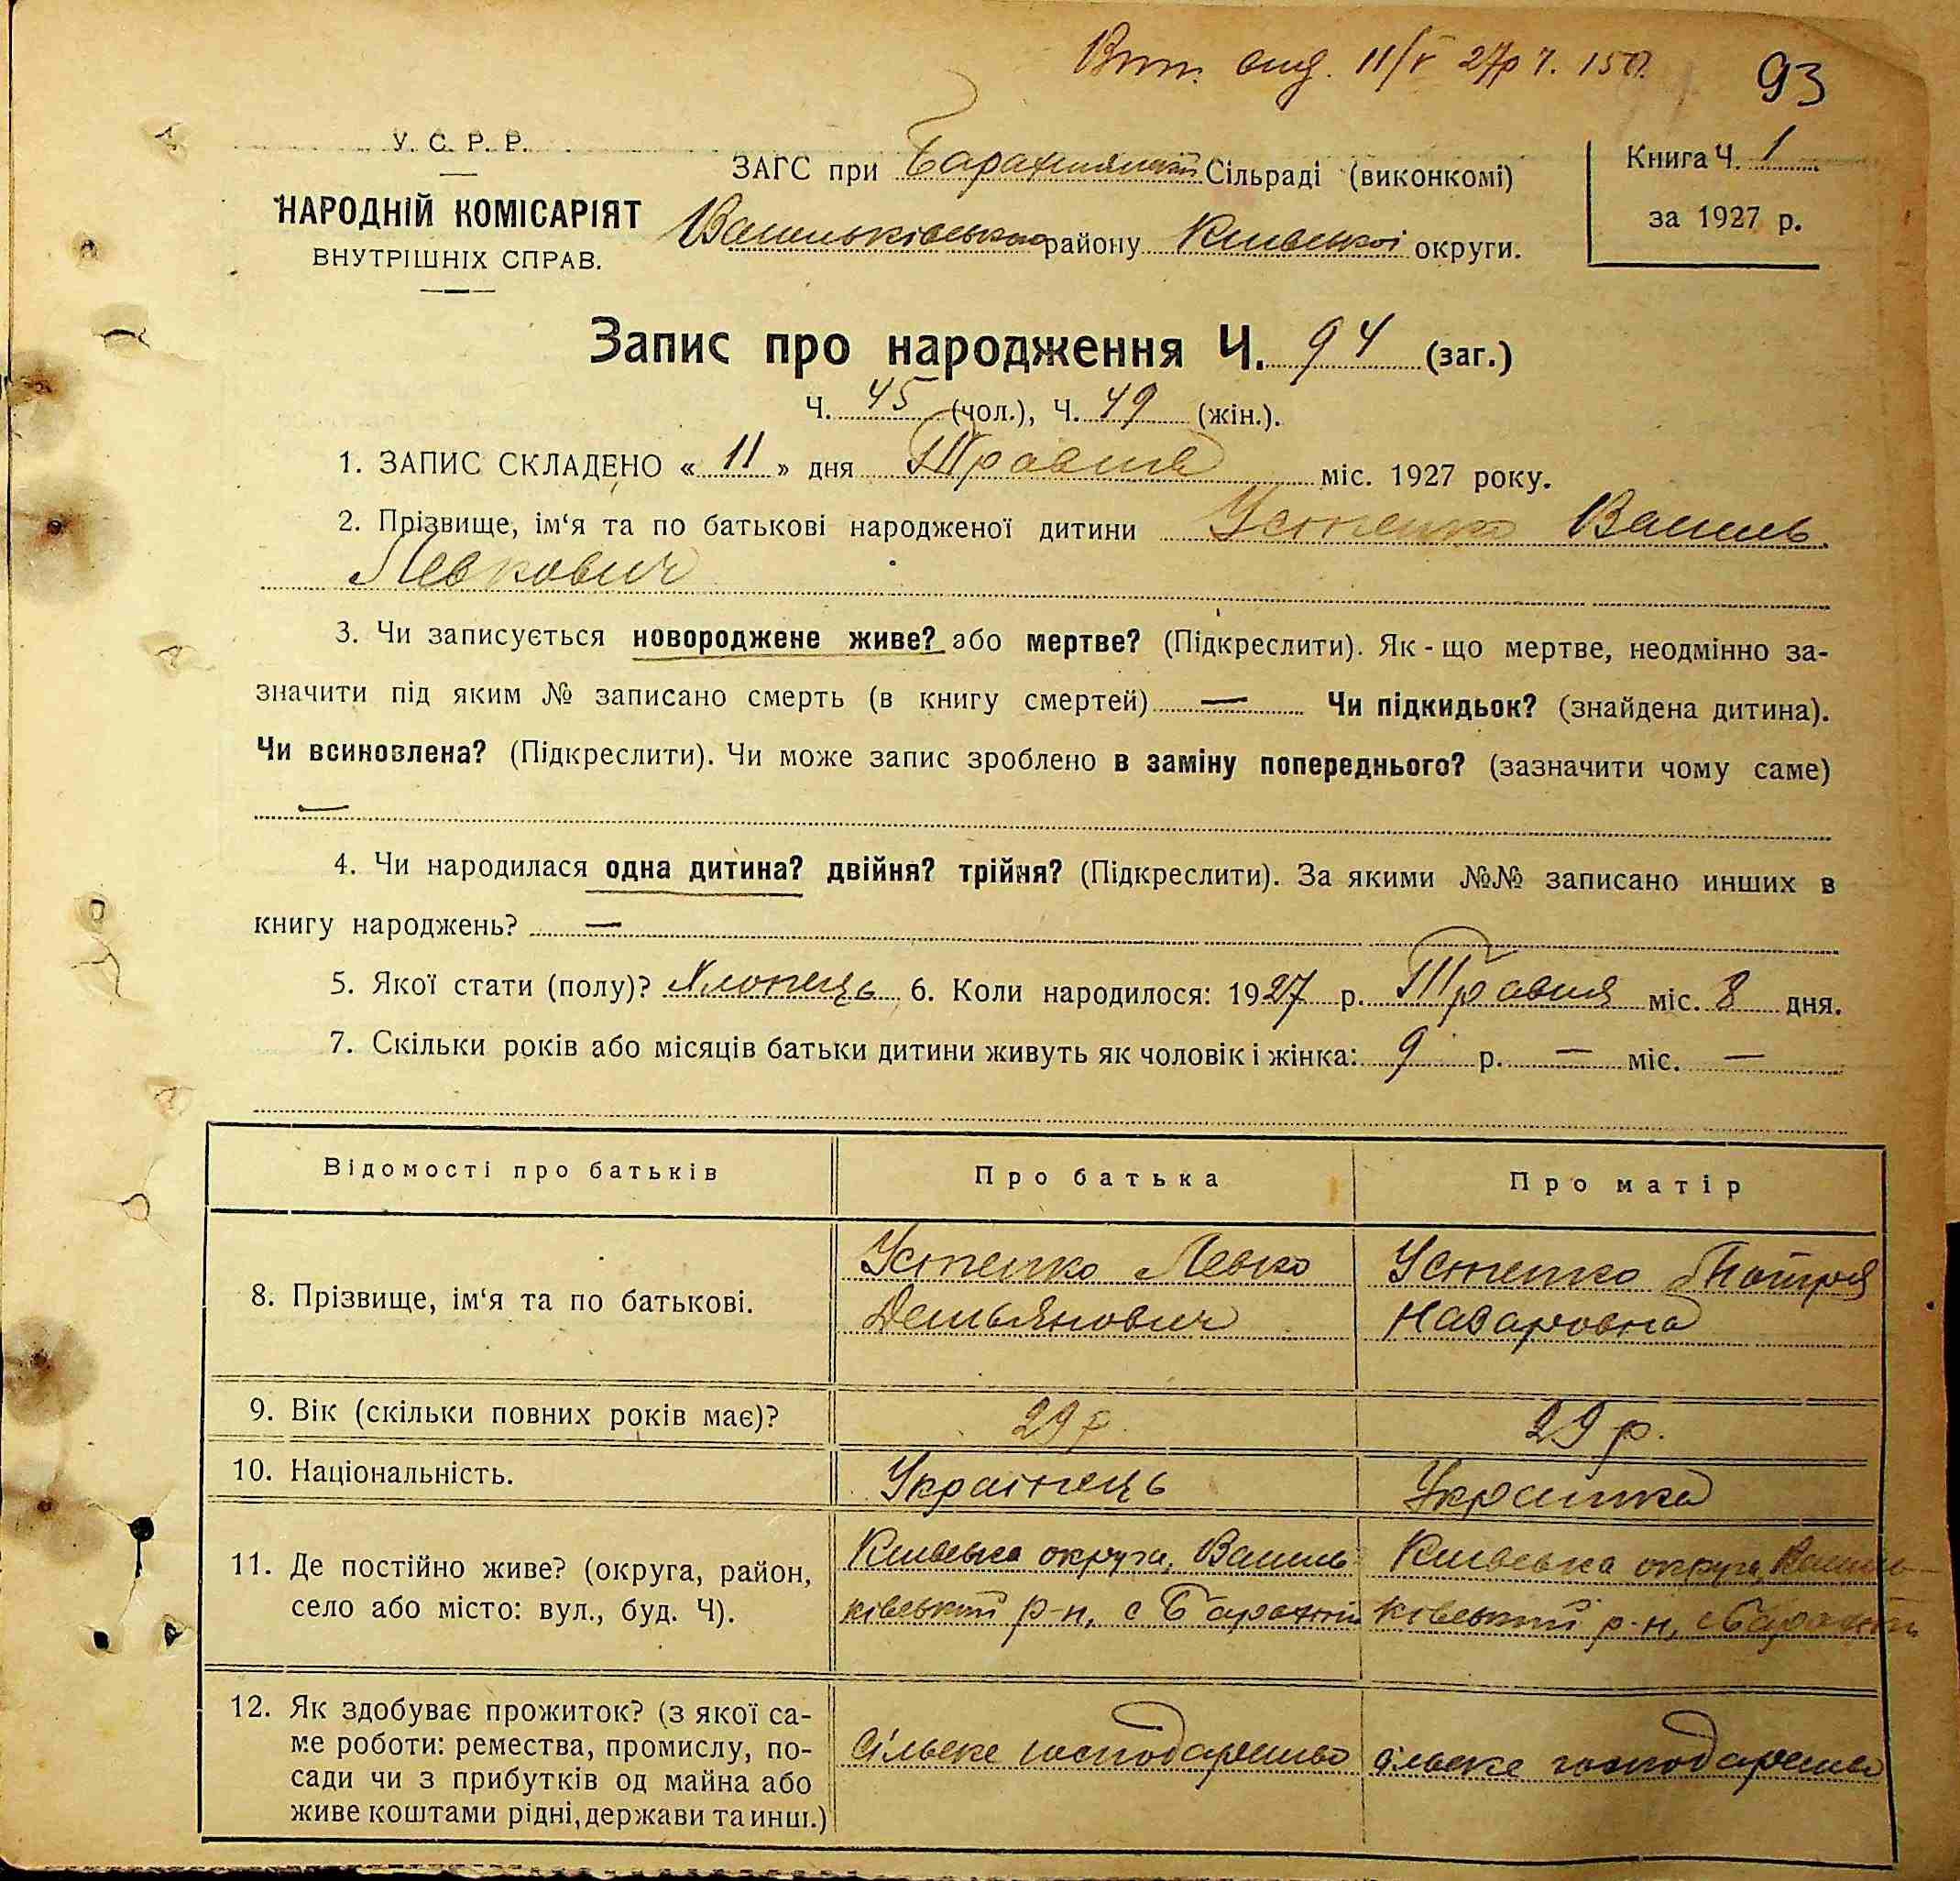 Вип. вид. 11/V 27р ч. 150.
93
У. С. Р. Р.
НАРОДНІЙ КОМІСАРІЯТ
ВНУТРІШНІХ СПРАВ.
ЗАГС при Барахтянській Сільраді (виконкомі)
Васильківського району Київської округи.
Книга Ч. 1
за 1927 р.
Запис про народження Ч. 94 (заг.)
Ч. 45 (чол.), Ч. 49 (жін.).
1. ЗАПИС СКЛАДЕНО « 11 » дня Травня міс. 1927 року.
2. Прізвище, ім‘я та по батькові народженої дитини Устенко Василь
Левкович
3. Чи записується новороджене живе? або мертве? (Підкреслити). Як - що мертве, неодмінно за-
значити під яким № записано смерть (в книгу смертей) — Чи підкидьок? (знайдена дитина).
Чи всиновлена? (Підкреслити). Чи може запис зроблено в заміну попереднього? (зазначити чому саме)
—
4. Чи народилася одна дитина? двійня? трійня? (Підкреслити). За якими №№ записано инших в
книгу народжень? —
5. Якої стати (полу)? Хлопець 6. Коли народилося: 1927 р. Травня міс. 8 дня.
7. Скільки років або місяців батьки дитини живуть як чоловік і жінка: 9 р. — міс. —
Відомості про батьків
Про батька
Про матір
8. Прізвище, ім‘я та по батькові.
Устенко Левко
Демьянович
Устенко Мотря
Назаровна
9. Вік (скільки повних років має)?
29 р.
29 р.
10. Національність.
Українець
Українка
11. Де постійно живе? (округа, район,
село або місто: вул., буд. Ч).
Київська округа, Василь
ківський р-н, с Барахти
Київська округа, Василь-
ківський р-н, с Барахти
12. Як здобуває прожиток? (з якої са-
ме роботи: ремества, промислу, по-
сади чи з прибутків од майна або
живе коштами рідні, держави та инш.)
сільське господарство
сільске господарство